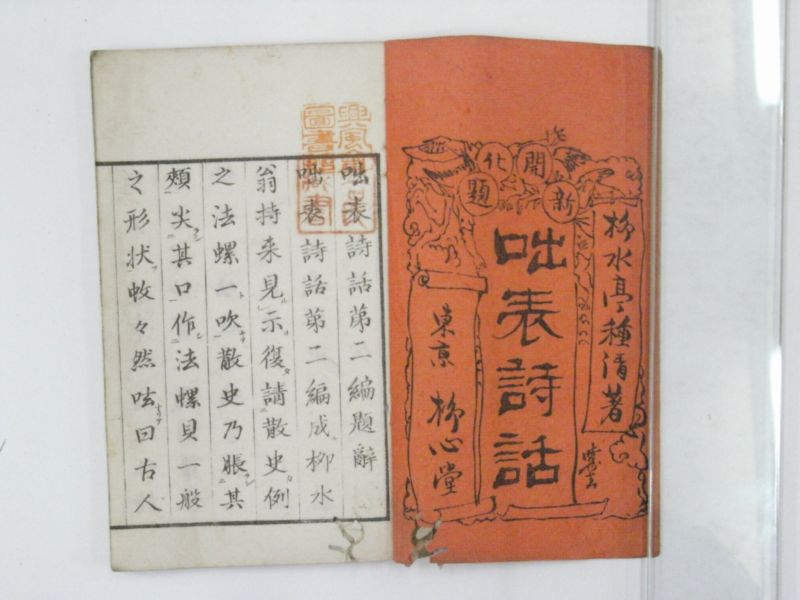 開化新題
柳水亭種清著
咄表詩話
東京 柳心堂
咄表詩話第二編題辭
咄表詩話第二編成柳水
翁持來見示復請散史例
之法螺一吹散史乃脹其
頰尖其口作法螺貝一般
之形状敀々然呟曰古人